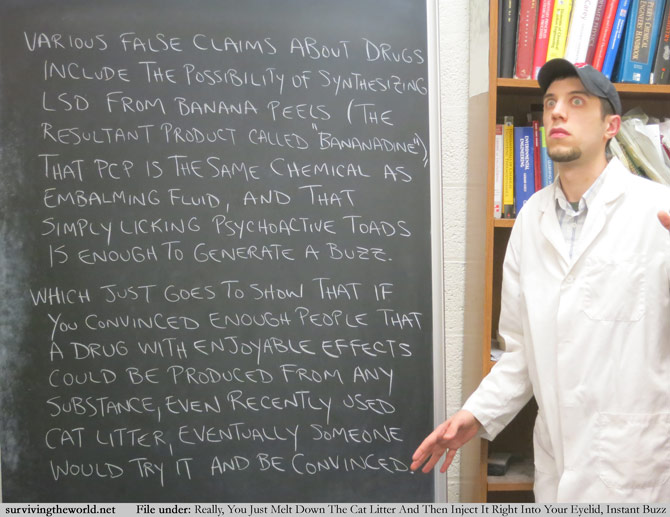 VARIOUS FALSE CLAIMS ABOUT DRUGS
INCLUDE THE POSSIBILITY OF SYNTHESIZING
LSD FROM BANANA PEELS (THE
RESULTANT PRODUCT CALLED "BANANADINE"),
THAT PCP IS THE SAME CHEMICAL AS
EMBALMING FLUID, AND THAT
SIMPLY LICKING PSYCHOACTIVE TOADS
IS ENOUGH TO GENERATE A BUZZ.
WHICH JUST GOES TO SHOW THAT IF
YOU CONVINCED ENOUGH PEOPLE THAT
A DRUG WITH ENJOYABLE EFFECTS
COULD BE PRODUCED FROM ANY
SUBSTANCE, EVEN RECENTLY USED
CAT LITTER, EVENTUALLY SOMEONE
WOULD TRY IT AND BE CONVINCED.
survivingtheworld.net File under: Really, You Just Melt Down The Cat Litter And Then Inject It Right Into Your Eyelid, Instant Buzz